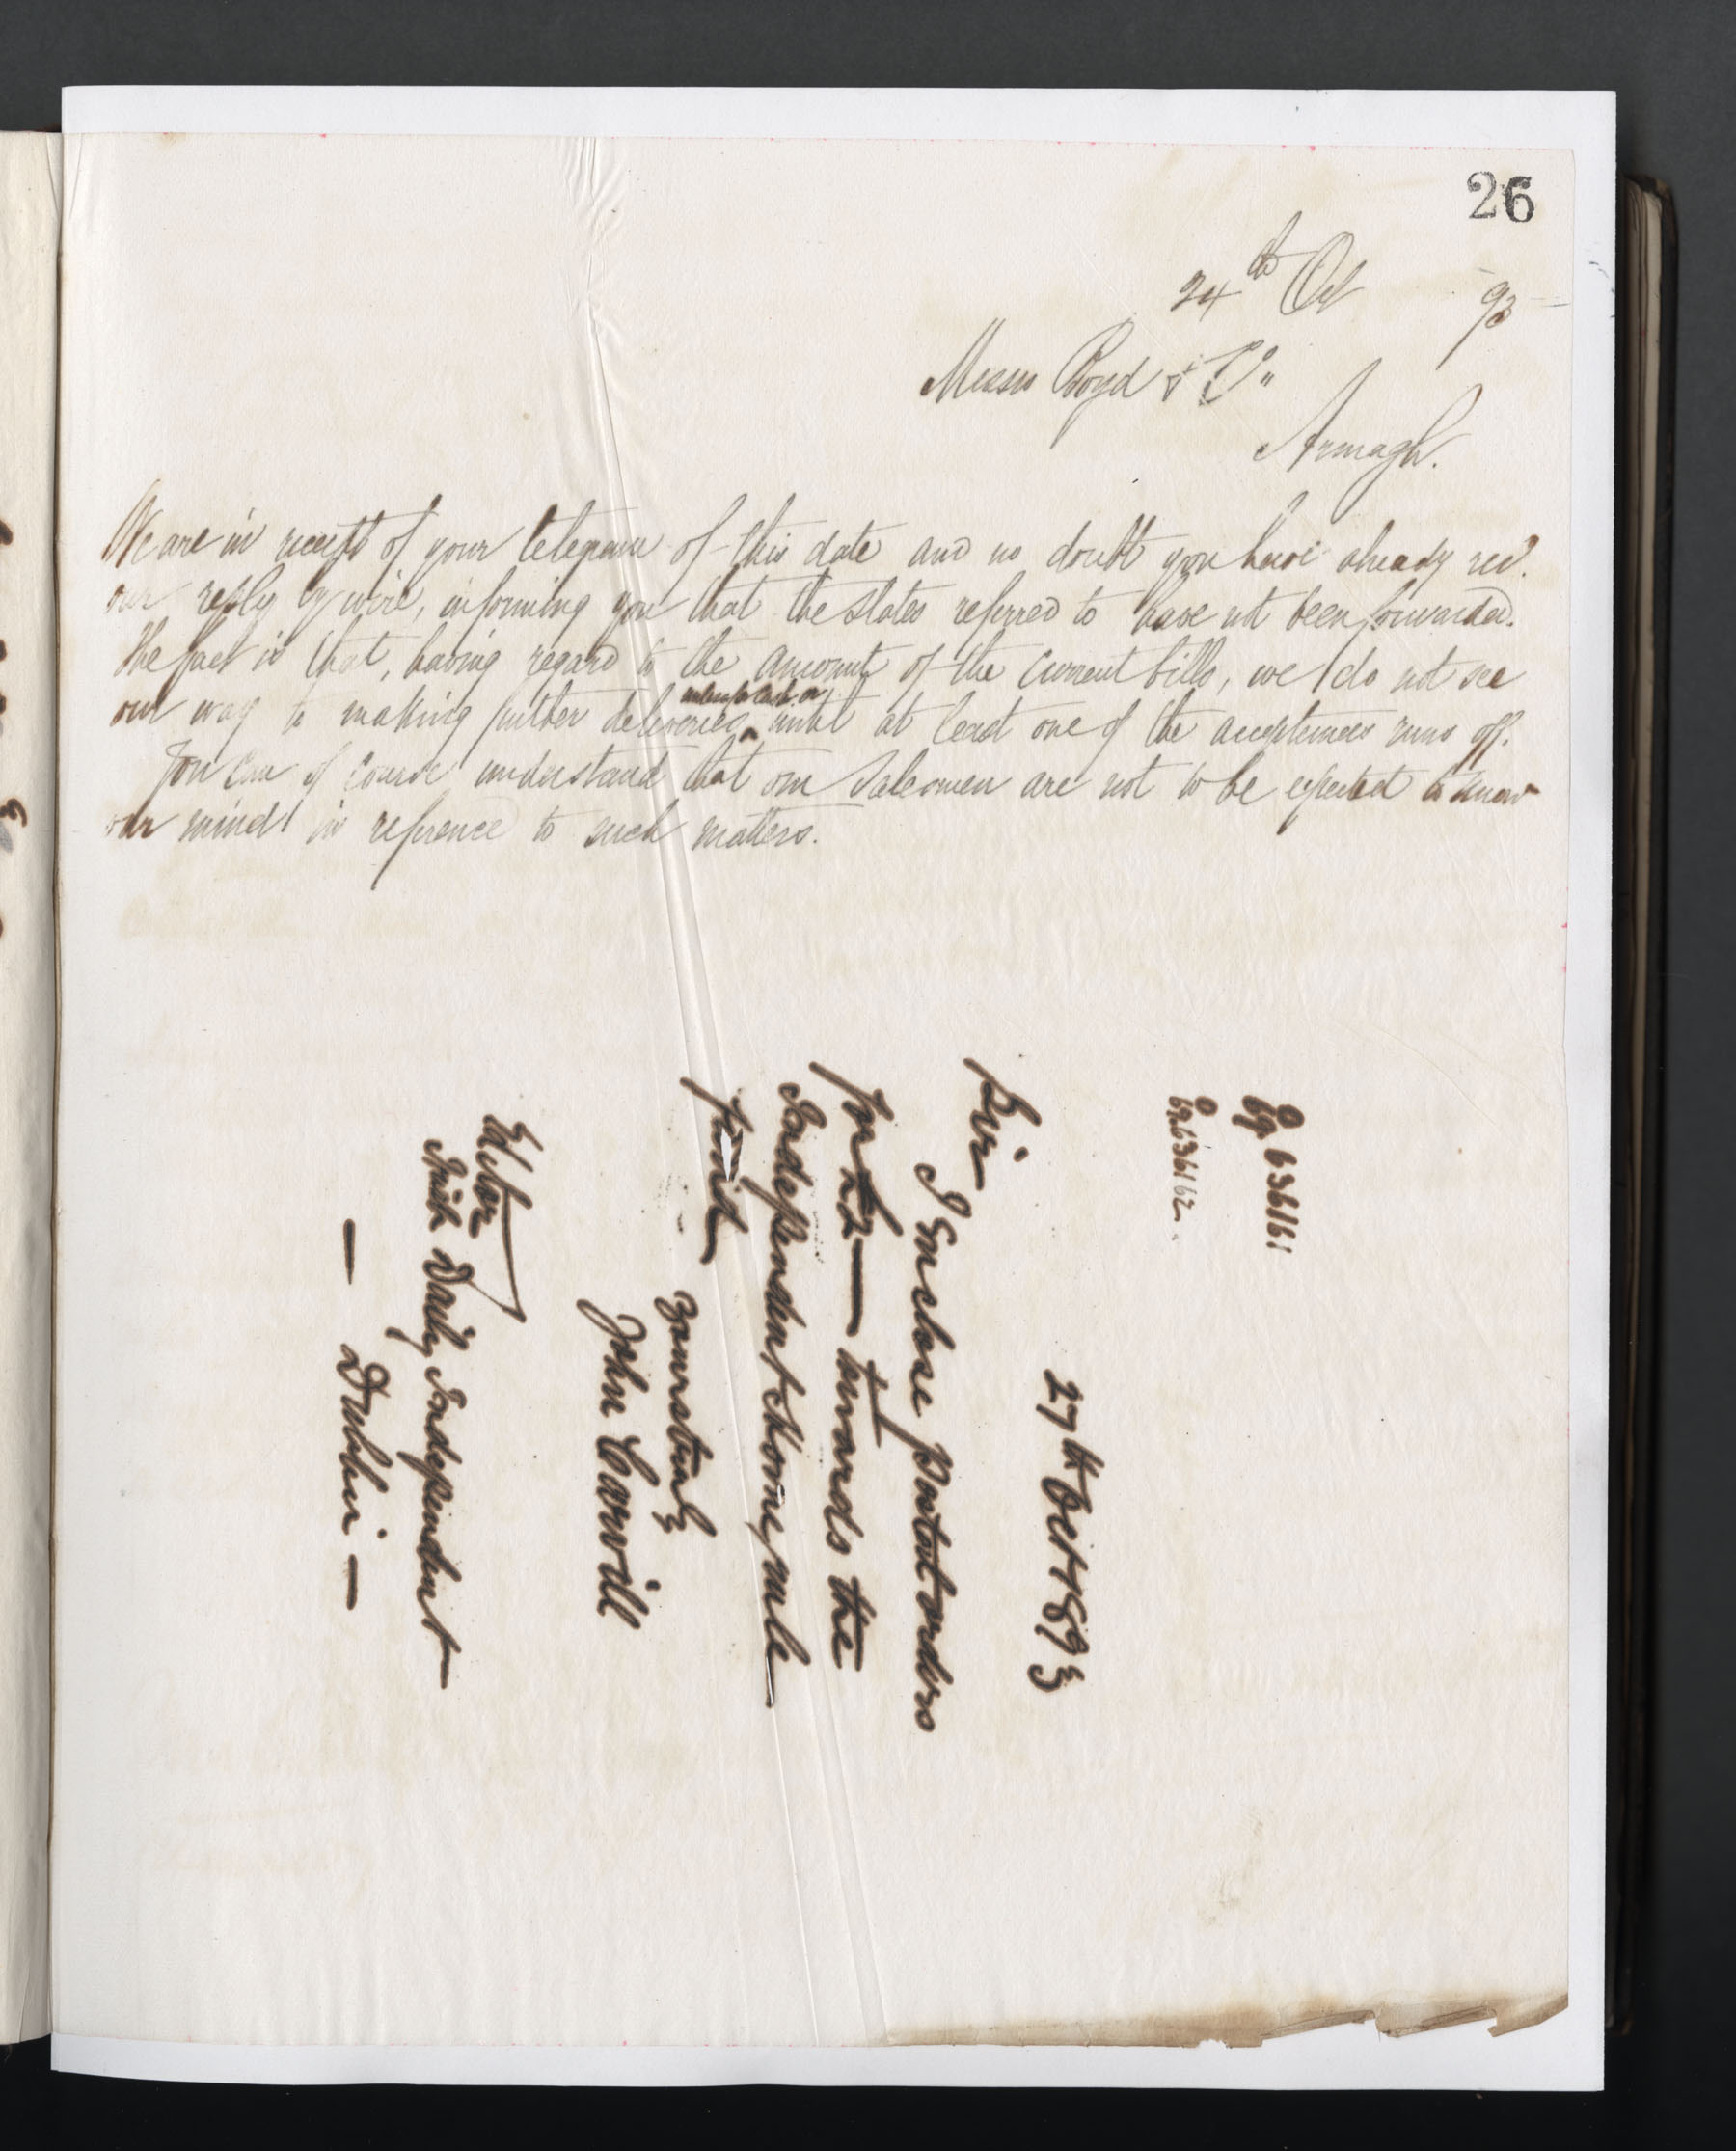 26
24th Oct 93
Messrs Boyd & Co.
Armagh.
We are in receipt of your telegram of this date and no doubt you have already recd.
our reply by wire, informing you that the slates referred to have not been forwarded.
The fact is that, having regard to the amount of the current bills, we do not see
unless for cash or
our way to making further deliveries ^ until at least one of the acceptances runs off.
You can of course understand that our Salesmen are not to be expected to know
our mind in reference to such matters.
69.636161
69.636162.
27th Oct 1893
Sir
I Enclose postal orders
for — towards the
Independent Home rule
fund
Yours truly
John Carvill
Editor
Irish Daily Independent
— Dublin —